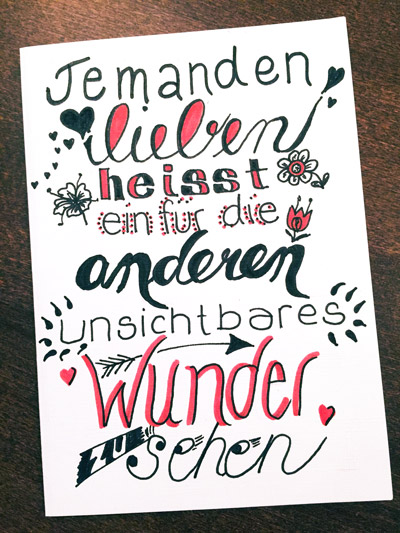 Jemanden
lieben
heisst
ein für die
anderen
unsichtbares
Wunder
zu sehen